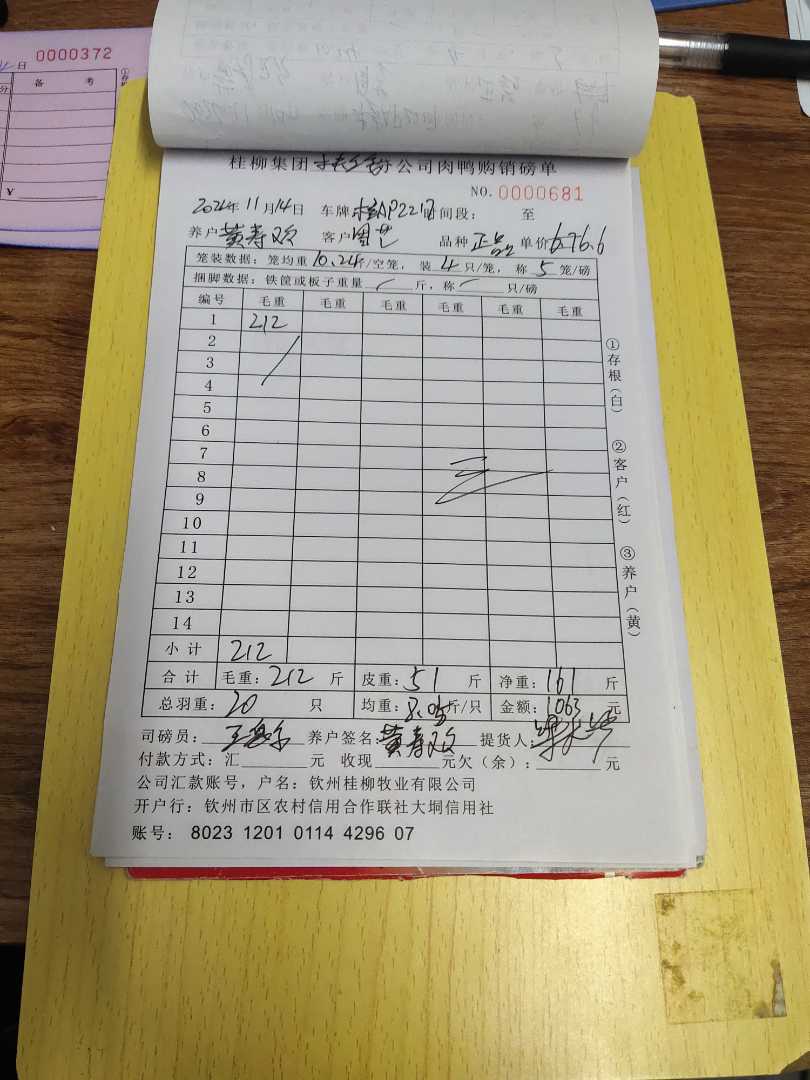 0000372
日
备 考
¥
桂柳集团 分公司肉鸭购销磅单
NO. 0000681
年11月14日 车牌 时间段: 至
养户 黄寿欢 客户 周艺 品种 正品 单价 6.6
笼装数据: 笼均重 10.2斤/空笼, 装 4 只/笼, 称 5 笼/磅
捆脚数据: 铁筐或板子重量 / 斤, 称 / 只/磅
编号 毛重 毛重 毛重 毛重 毛重 毛重
1 212
2
3
4
5
6
7
8
9
10
11
12
13
14
小计 212
合计 毛重: 212 斤 皮重: 51 斤 净重: 161 斤
总羽重: 20 只 均重: 8.05斤/只 金额: 1063 元
司磅员: 养户签名: 黄寿欢 提货人:
付款方式: 汇 元 收现 元欠(余): 元
公司汇款账号, 户名: 钦州桂柳牧业有限公司
开户行: 钦州市区农村信用合作联社大垌信用社
账号: 8023 1201 0114 4296 07
①存根(白)
②客户(红)
③养户(黄)